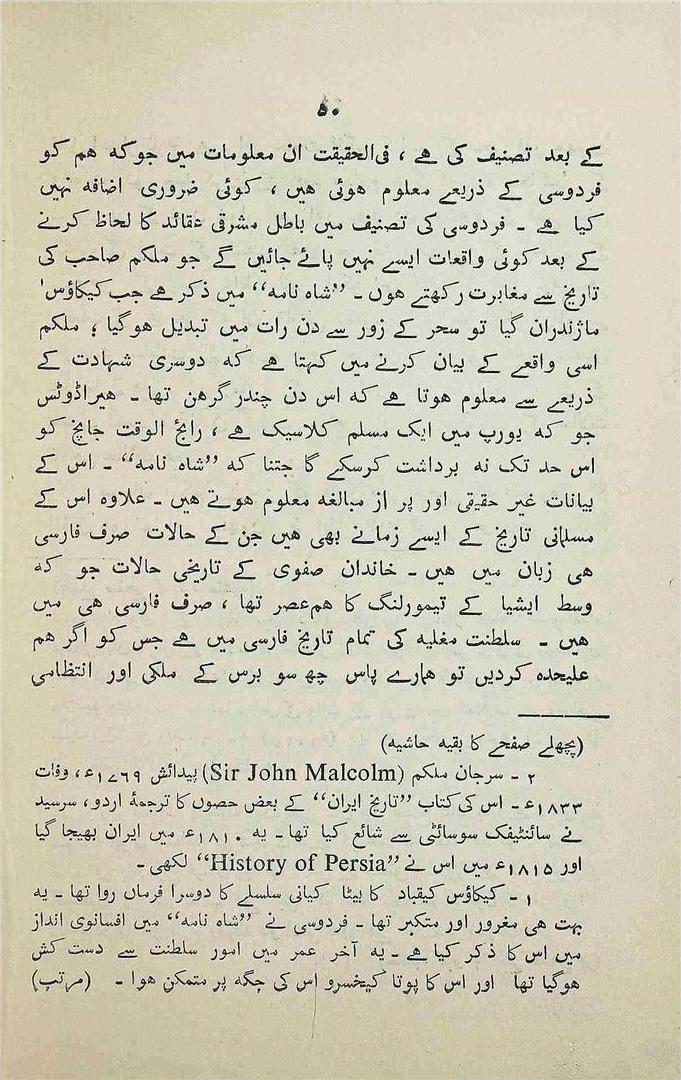 ۵۰
کے بعد تصنیف کی ہے ، فی‌الحقیقت ان معلومات میں جو کہ ہم کو
فردوسی کے ذریعے معلوم ہوئی ہیں ، کوئی ضروری اضافہ نہیں
کیا ہے ۔ فردوسی کی تصنیف میں باطل مشرقی عقائد کا لحاظ کرنے
کے بعد کوئی واقعات ایسے نہیں پائے جائیں گے جو ملکم صاحب کی
تاریخ سے مغایرت رکھتے ہوں ۔ ”شاہ نامہ“ میں ذکر ہے جب کیکاؤس¹
ماژندران گیا تو سحر کے زور سے دن رات میں تبدیل ہوگیا ؛ ملکم
اسی واقعے کے بیان کرنے میں کہتا ہے کہ دوسری شہادت کے
ذریعے سے معلوم ہوتا ہے کہ اس دن چندر گرہن تھا ۔ ہیراڈوٹس
جو کہ یورپ میں ایک مسلم کلاسیک ہے ، رایج الوقت جانچ کو
اس حد تک نہ برداشت کرسکے گا جتنا کہ ”شاہ نامہ“ ۔ اس کے
بیانات غیر حقیقی اور پر از مبالغہ معلوم ہوتے ہیں ۔ علاوہ اس کے
مسلمانی تاریخ کے ایسے زمانے بھی ہیں جن کے حالات صرف فارسی
ہی زبان میں ہیں ۔ خاندان صفوی کے تاریخی حالات جو کہ
وسط ایشیا کے تیمورلنگ کا ہم‌عصر تھا ، صرف فارسی ہی میں
ہیں ۔ سلطنت مغلیہ کی تمام تاریخ فارسی میں ہے جس کو اگر ہم
علیحدہ کردیں تو ہمارے پاس چھ سو برس کے ملکی اور انتظامی
(پچھلے صفحے کا بقیہ حاشیہ)
۲ ۔ سرجان ملکم (Sir John Malcolm) پیدائش ۱۷۶۹ء ، وفات
۱۸۳۳ء ۔ اس کی کتاب ”تاریخ ایران“ کے بعض حصوں کا ترجمۂ اردو ، سرسید
نے سائنٹیفک سوسائٹی سے شائع کیا تھا ۔ یہ ۱۸۱۰ء میں ایران بھیجا گیا
اور ۱۸۱۵ء میں اس نے ”History of Persia“ لکھی ۔
۱ ۔ کیکاؤس کیقباد کا بیٹا کیانی سلسلے کا دوسرا فرماں روا تھا ۔ یہ
بہت ہی مغرور اور متکبر تھا ۔ فردوسی نے ”شاہ نامہ“ میں افسانوی انداز
میں اس کا ذکر کیا ہے ۔ یہ آخر عمر میں امور سلطنت سے دست کش
ہوگیا تھا اور اس کا پوتا کیخسرو اس کی جگہ پر متمکن ہوا ۔ (مرتب)